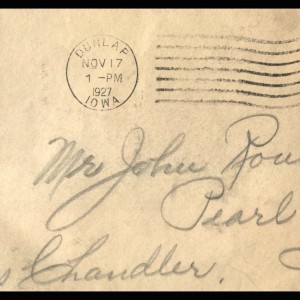 DUNLAP
NOV 17
1 -PM
1927
IOWA
Mr John
Pearl
Chandler.